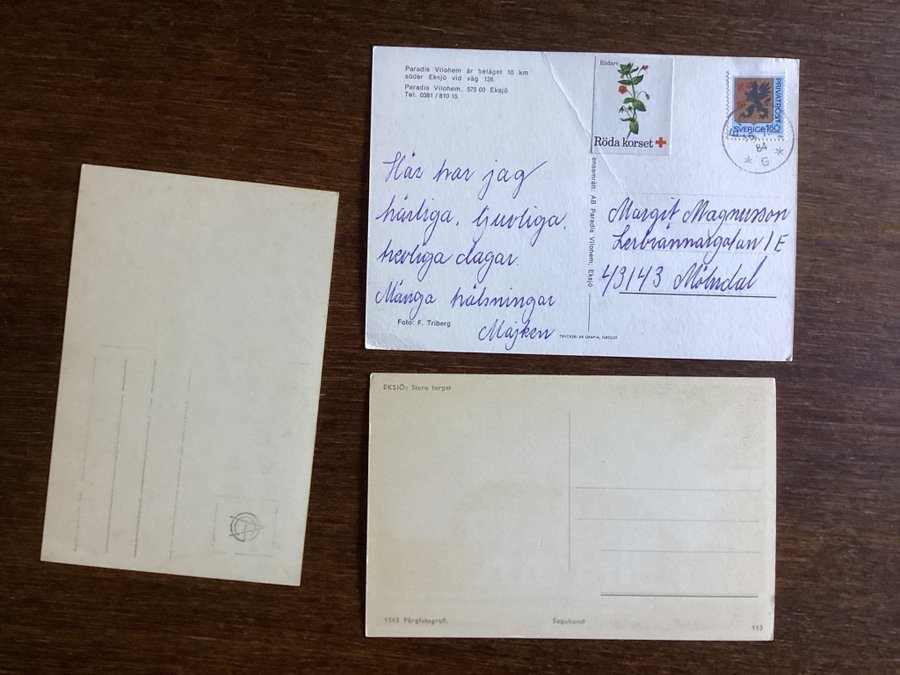 Paradis Vilohem är beläget 10 km
söder Eksjö vid väg 128.
Paradis Vilohem, 575 00 Eksjö
Tel. 0381/810 15
Rödarv
Röda korset
PRIVATPOST
SVERIGE 160
84
* G *
Här har jag
härliga, ljuvliga,
trevliga dagar.
Många hälsningar
Majken
Foto: F. Triberg
ensamrätt: AB Paradis Vilohem, Eksjö
TRYCKERI AB GRAFIA, NÄSSJÖ
Margit Magnusson
Lerbrännaregatan 1 E
43143 Mölndal
EKSJÖ: Stora torget
1565 Färgfotografi.
Sagokonst
113